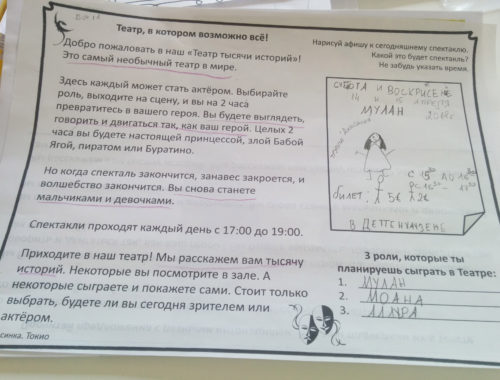 Театр, в котором возможно всё!
Добро пожаловать в наш «Театр тысячи историй»!
Это самый необычный театр в мире.
Здесь каждый может стать актёром. Выбирайте
роль, выходите на сцену, и вы на 2 часа
превратитесь в вашего героя. Вы будете выглядеть,
говорить и двигаться так, как ваш герой. Целых 2
часа вы будете настоящей принцессой, злой Бабой
Ягой, пиратом или Буратино.
Но когда спекталь закончится, занавес закроется, и
волшебство закончится. Вы снова станете
мальчиками и девочками.
Спектакли проходят каждый день с 17:00 до 19:00.
Приходите в наш театр! Мы расскажем вам тысячу
историй. Некоторые вы посмотрите в зале. А
некоторые сыграете и покажете сами. Стоит только
выбрать, будете ли вы сегодня зрителем или
актёром.
синка. Токио
Нарисуй афишу к сегодняшнему спектаклю.
Какой это будет спектакль?
Не забудь указать время.
СУБОТА И ВОСКРИСЕ
14 и 15
МУЛАН
С 15 ДО 16
билет: 5€
3 роли, которые ты
планируешь сыграть в Театре:
1. МУЛАН
2. МОАНА
3.